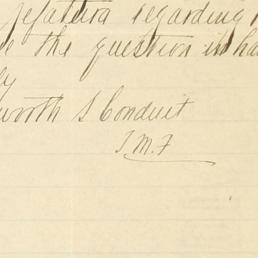 jefatura regarding
the question in ha
ly
worth S Conduit
J.M.F